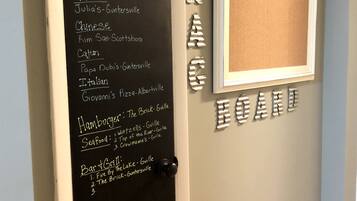 Julia's - Guntersville
Chinese
Kim San - Scottsboro
Cajun
Papa Dubi's - Guntersville
Italian
Giovanni's Pizza - Albertville
Hamburger: The Brick - Guville
Seafood: 1. Wintzell's - Gville
2. Top of the River - Gville
3. Crawmama's - Gville
Bar & Grill:
1. Fire By The Lake - Gville
2. The Brick - Guntersville
3.
RAG
BOARD